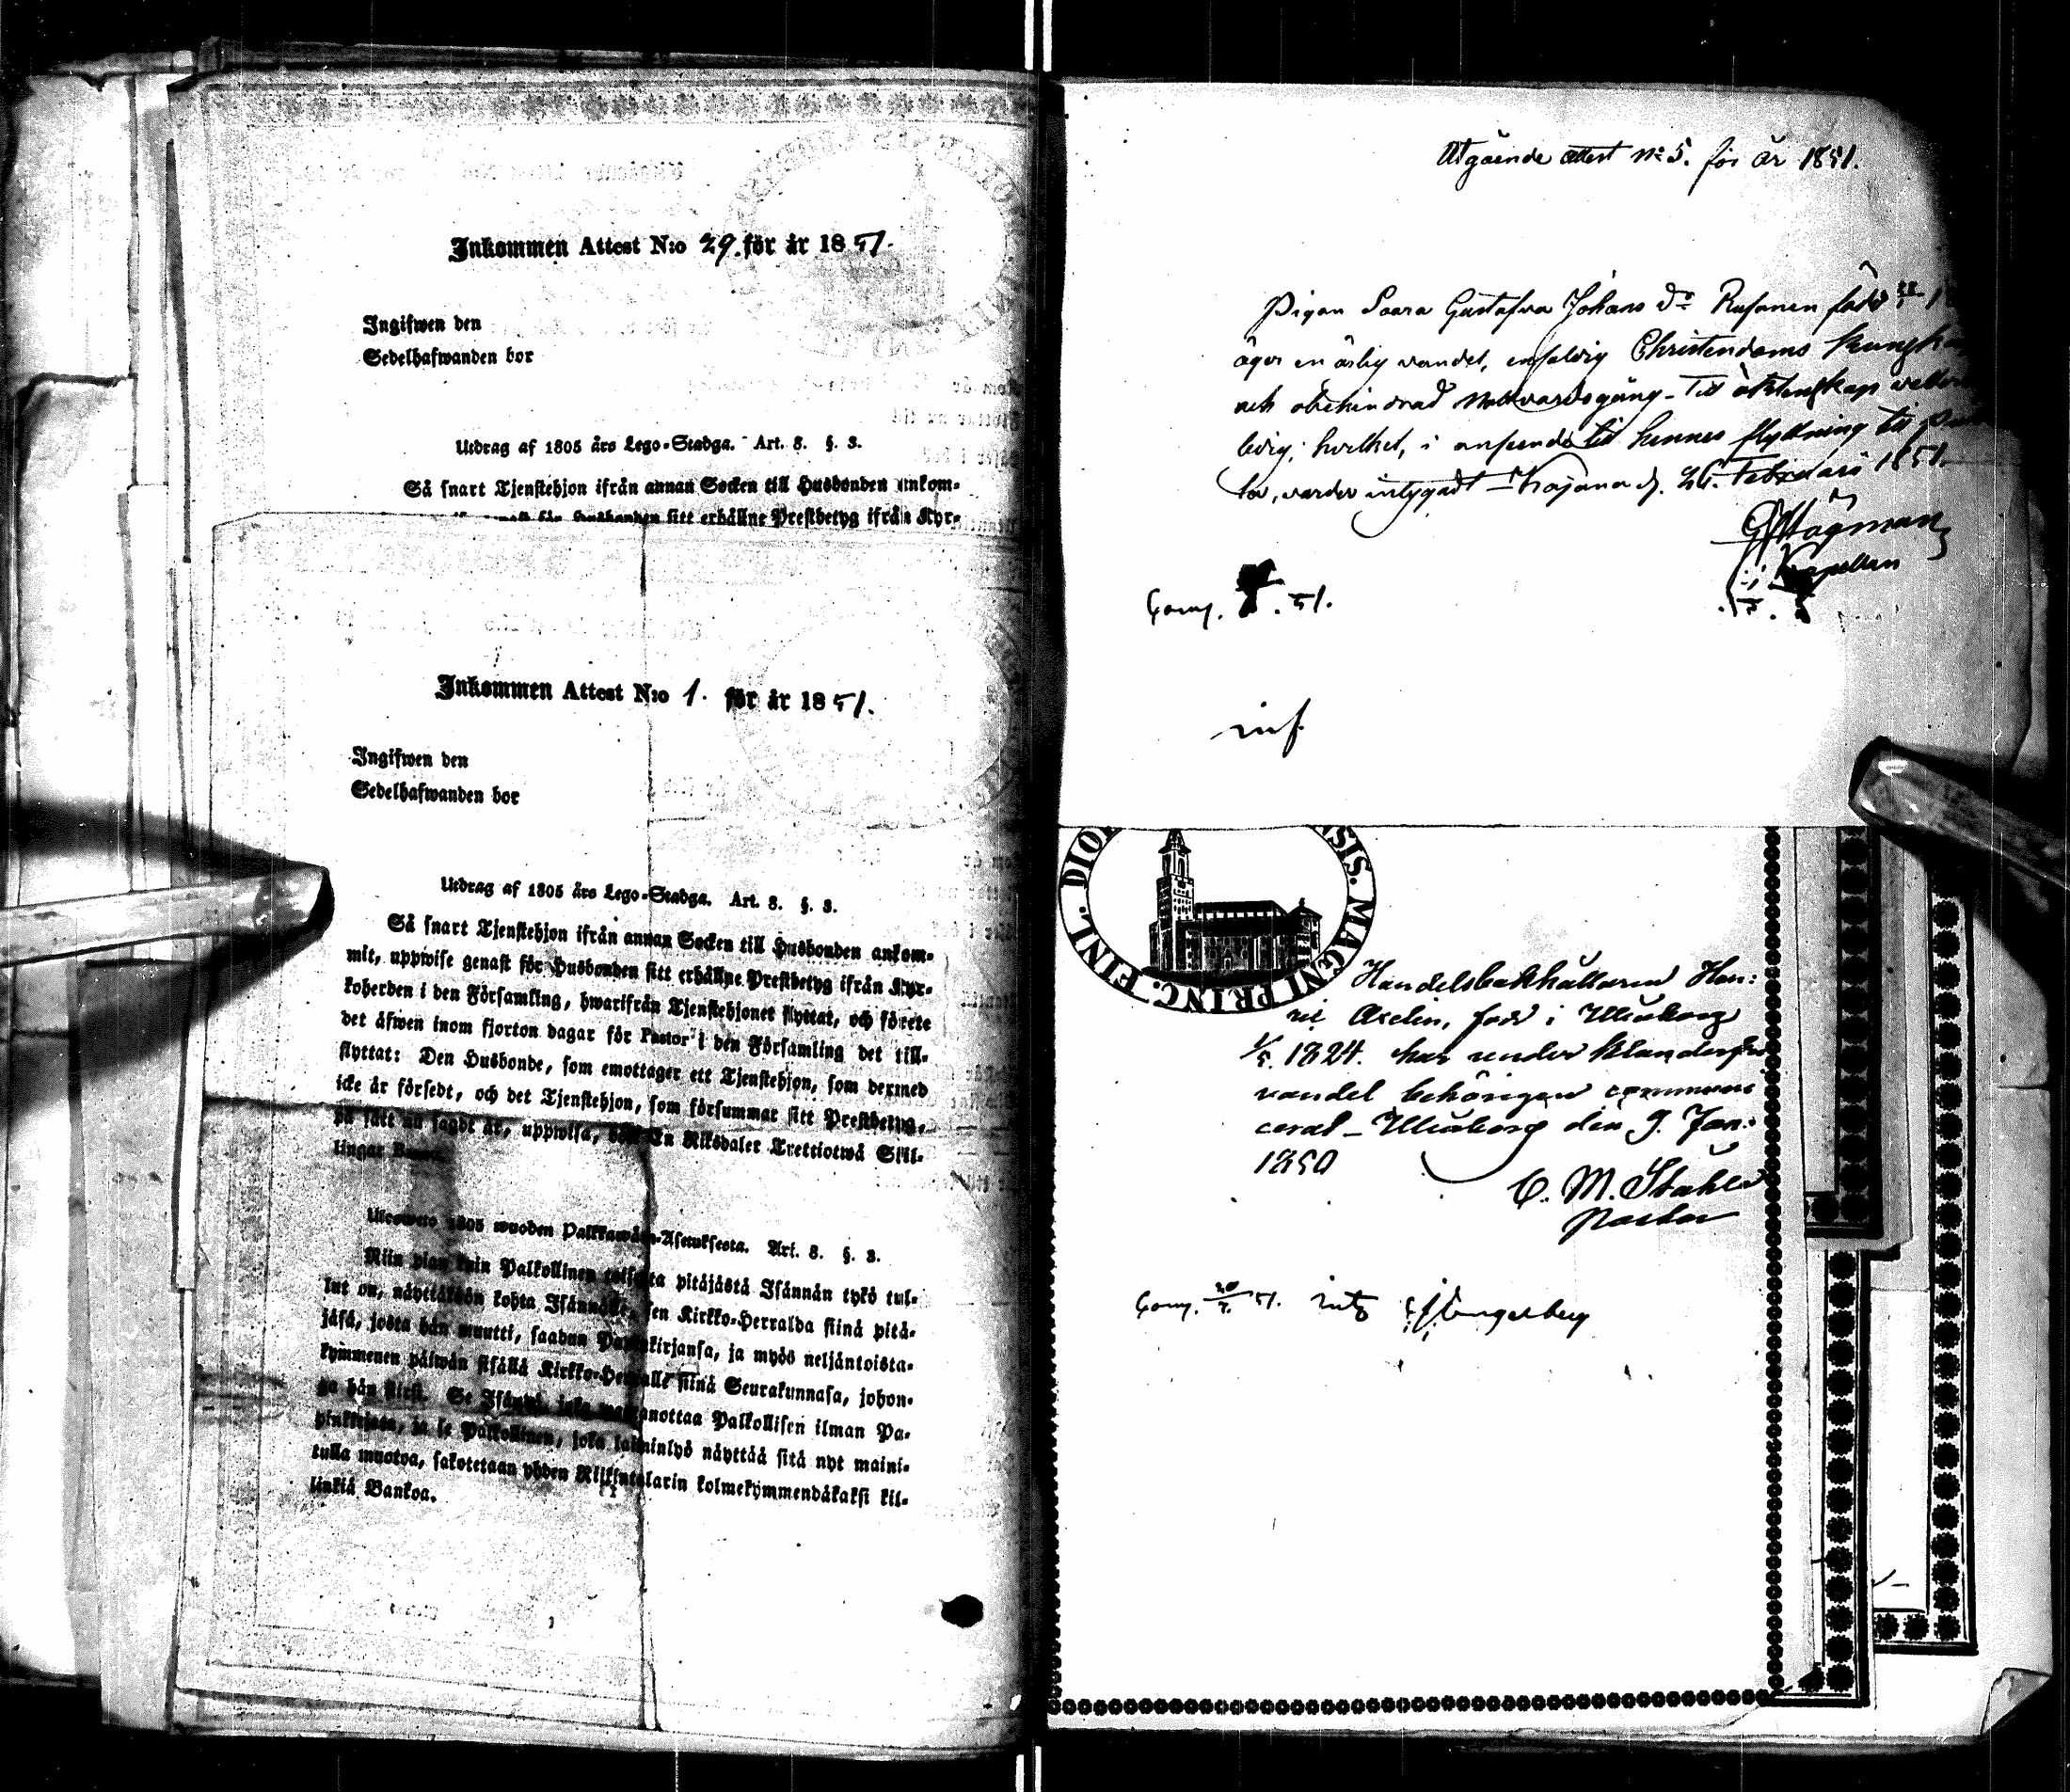 Inkommen Attest N:o 29. för år 1851.
Ingifwen den
Sedelhafwanden bor
Utdrag af 1805 års Lego-Stadga. Art. 8. §. 3.
Så snart Tjenstehjon ifrån annan Socken till Husbonden ankom-
för Husbonden sitt erhållne Prestbetyg ifrån Kyr-
Inkommen Attest N:o 1. för år 1851.
Ingifwen den
Sedelhafwanden bor
Utdrag af 1805 års Lego-Stadga. Art. 8. §. 3.
Så snart Tjenstehjon ifrån annan Socken till Husbonden ankom-
mit, uppwise genast för Husbonden sitt erhållne Prestbetyg ifrån Kyr-
koherden i den Församling, hwarifrån Tjenstehjonet flyttat, och förete
det äfwen inom fjorton dagar för Pastor i den Församling det till-
flyttat: Den Husbonde, som emottager ett Tjenstehjon, som dermed
icke är försedt, och det Tjenstehjon, som försummar sitt Prestbetyg,
på sätt nu sagdt är, uppwisa, böte En Riksdaler Trettiotwå Skil-
lingar Banco.
Ulosweto 1805 wuoden Palkkawäen-Asetuksesta. Art. 8. §. 3.
Niin pian kuin Palkollinen toisesta pitäjästä Isännän tykö tul-
lut on, näyttäköön kohta Isännälle, sen Kirkko-Herralda siinä pitä-
jäsä, josta hän muutti, saadun Papinkirjansa, ja myös neljäntoista-
kymmenen päiwän sisällä Kirkko-Herralle siinä Seurakunnasa, johon-
ga hän siirsi. Se Isändä, joka wastanottaa Palkollisen ilman Pa-
pinkirjata, ja se Palkollinen, joka laiminlyö näyttää sitä nyt maini-
tulla muotoa, sakotetaan yhden Riikintalarin kolmekymmendäkaksi kil-
linkiä Bankoa.
Utgående attest No 5. för år 1851.
Pigan Saara Gustafva Johans dr Rusanen född
äger en ärlig vandel, enfaldig Christendoms kunskap
och obehindrad Nattvardsgång - Till äktenskap
ledig; hvilket, i anseende till hennes flyttning till
varder intygadt - Kajana d. 26. Februari 1851.
G Högman
Kapellan
Comp. .51.
inf.
FINL. DIO
SIS. MAGNI PRINC.
Handelsbokhållaren Hen:
ric Axelin, född i Uleåborg
1/5. 1824. har under klanderfri
vandel behörigen commun:
cerat - Uleåborg den 9. Jan:
1850
C. M. Ståhle
Pastor
Comp. 51.